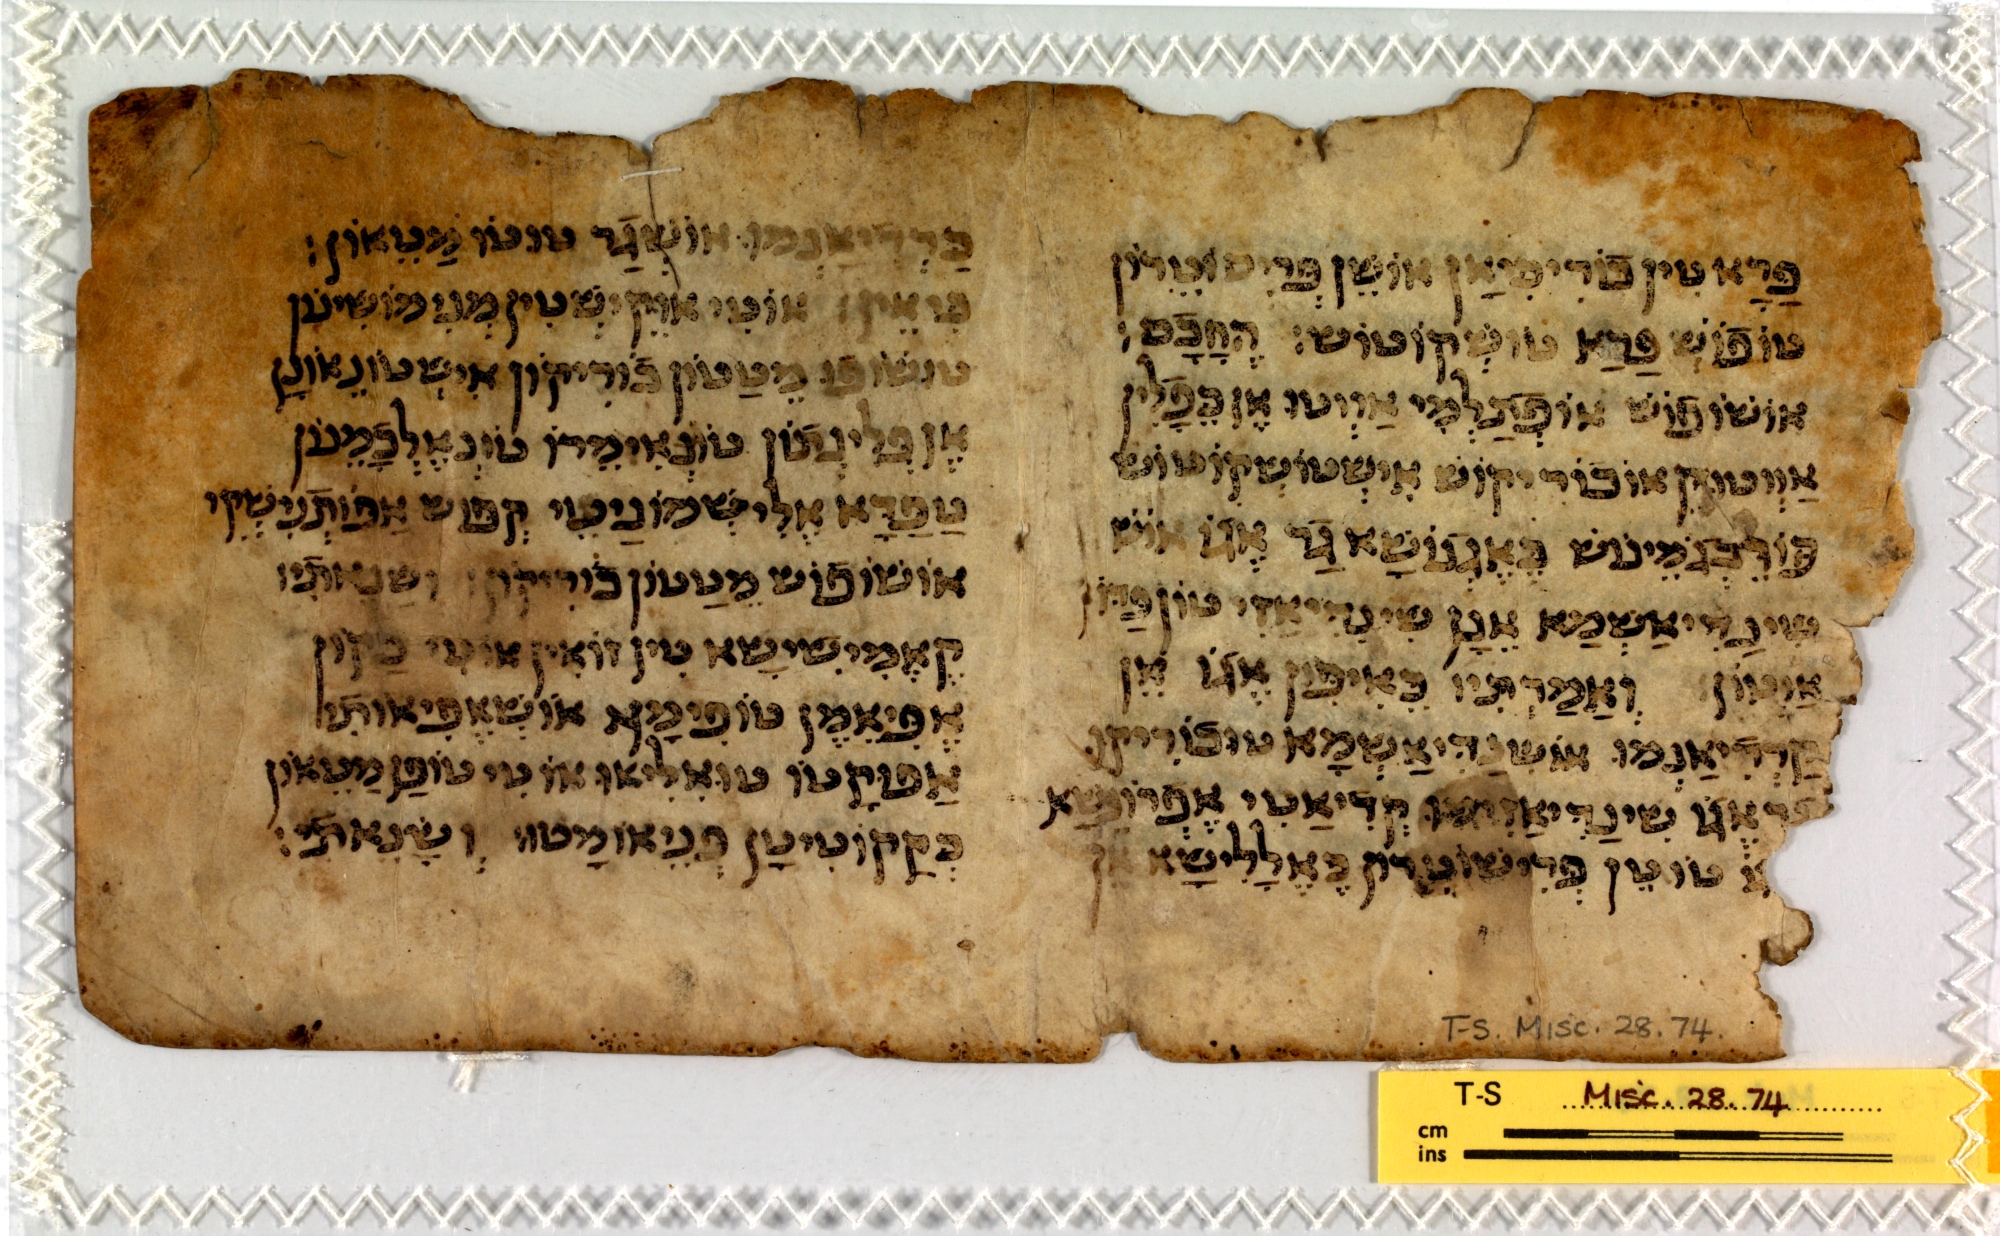 פרא טין פורימיאן אושן פריסוטרון
טופוש פרא טושקוטוש: החכם:
אושופוש אופתלמי אווטו אן כפלין
אווטוק אופוריקוש אישטושקוטוש
פורבגמינוש כאגנושא גר אגו
שינדיאשמא אנן שינדיאזי טון
אוטון ואמרתיו כאיפון אגו אן
קרדיאנמו אושינדיאשמא טופוריקו
שינדיאזיתמו קדיאטי אפרוטא
טוטן פרישוטרון כאללישא
כרדיאנמו אושגר טנטו מטאון:
כיאין אוטי אוקישטין מנימושינון
טנשופו מטטון כוריקון אישטונאונן
אן פלינפטן טונאימרו טונאלכמנון
טפדא אלישמוניטי קפוש אפותנישקי
אושופוש מטטון פוריקון ושנאתיו
קאמישישא טין זואין אוטי כקון
אפיאמן טופימא אושאפיאותו
אפוקטו טואליאו אוטי טופן מטאון
כקקוטיטן פניאומטו ושנאתי:
T-S. Misc. 28.74.
T-S Misc. 28. 74
cm
ins